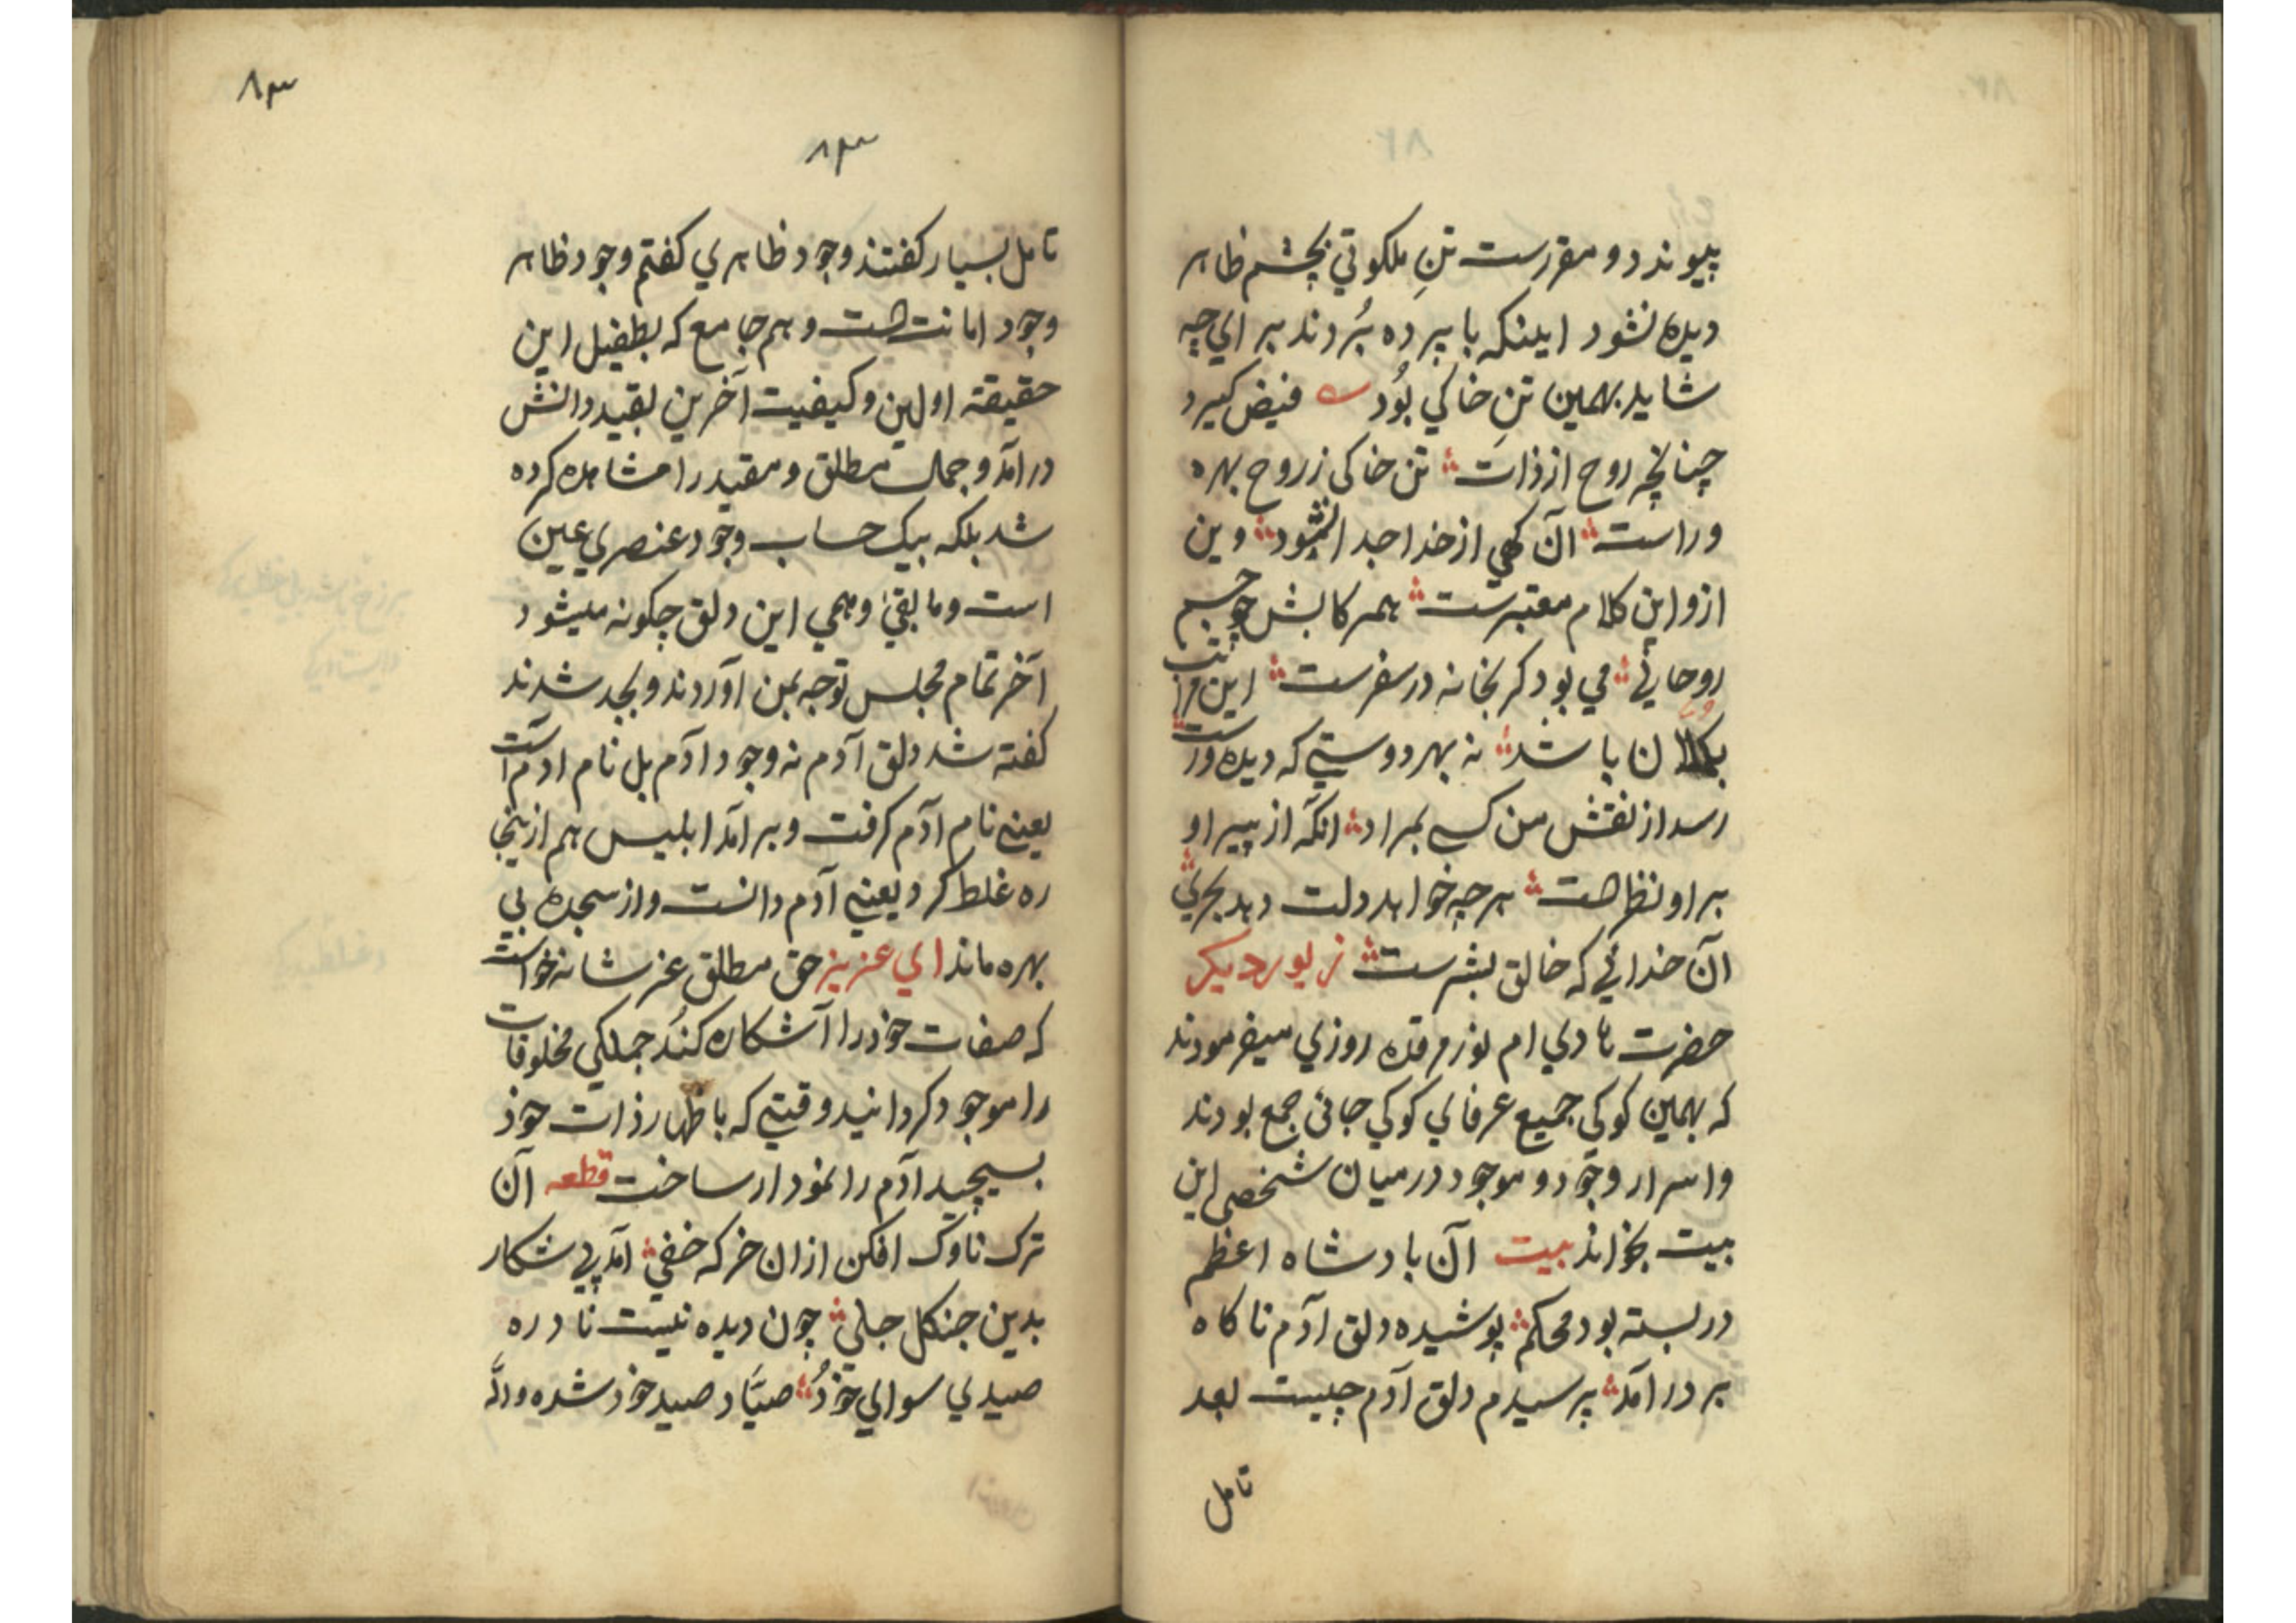 پیوندد و مقررست تنِ ملکوتی بچشم ظاهر
دیده نشود اینکه با پرده بُردند برای چه
شاید بهمین تنِ خاکی بُود فیض گیرد
چنانچه روح از ذات تن خاکی ز روح بهره
وراست آن کهی از خدا جدا نشود وین
ازو این کلام معتبرست همرکابش چو جسم
روحانی می بود کر بخانه در سفرست این مراتب
باشد نه بهر دوستی که دیده ورست
رسد از نقش من کسی بمراد انکه از پیر او
بر او نظر هست هرچه خواهد دلت دهد بحری
آن خدائی که خالق بشرست زیور دیکر
حضرت هادی ام نور مرقده روزی میفرمودند
که بهمین کوکی جمیع عرفای کوکی جائی جمع بودند
و اسرار وجود و موجود درمیان شخصی این
بیت بخواند بیت آن بادشاه اعظم
در بسته بود محکم پوشیده دلق آدم ناکاه
بر در آمد پرسیدم دلق آدم چیست بعد
تامل
۸۳
۸۳
تامل بسیار کفتند وجود ظاهری کفتم وجود ظاهر
وجود امانت هست و هم جامع که بطفیل این
حقیقته اولین و کیفیت آخرین بقید دانش
درآمد و جمال مطلق و مقید را مشاهده کرده
شد بلکه بیک حساب وجود عنصری عین
است و مابقی وهمی این دلق چکونه میشود
آخر تمام مجلس توجه بمن آوردند و بجد شدند
کفته شد دلق آدم نه وجود آدم بل نام ادم است
یعنی نام آدم کرفت و برامد ابلیس هم ازینجا
ره غلط کرد یعنی آدم دانست و از سجده بی
بهره ماند ای عزیز حق مطلق عز شانه خواست
که صفات خود را آشکاره کند جملکی مخلوقات
را موجود کردانید وقتی که باظهار ذات خود
بسیچید آدم را نمودار ساخت قطعه آن
ترک ناوک افکن ازان خرکه خفی آمد پی شکار
بدین جنکل جلی چون دیده نیست نادره
صیدی سوای خود صیّاد صید خود شده والله